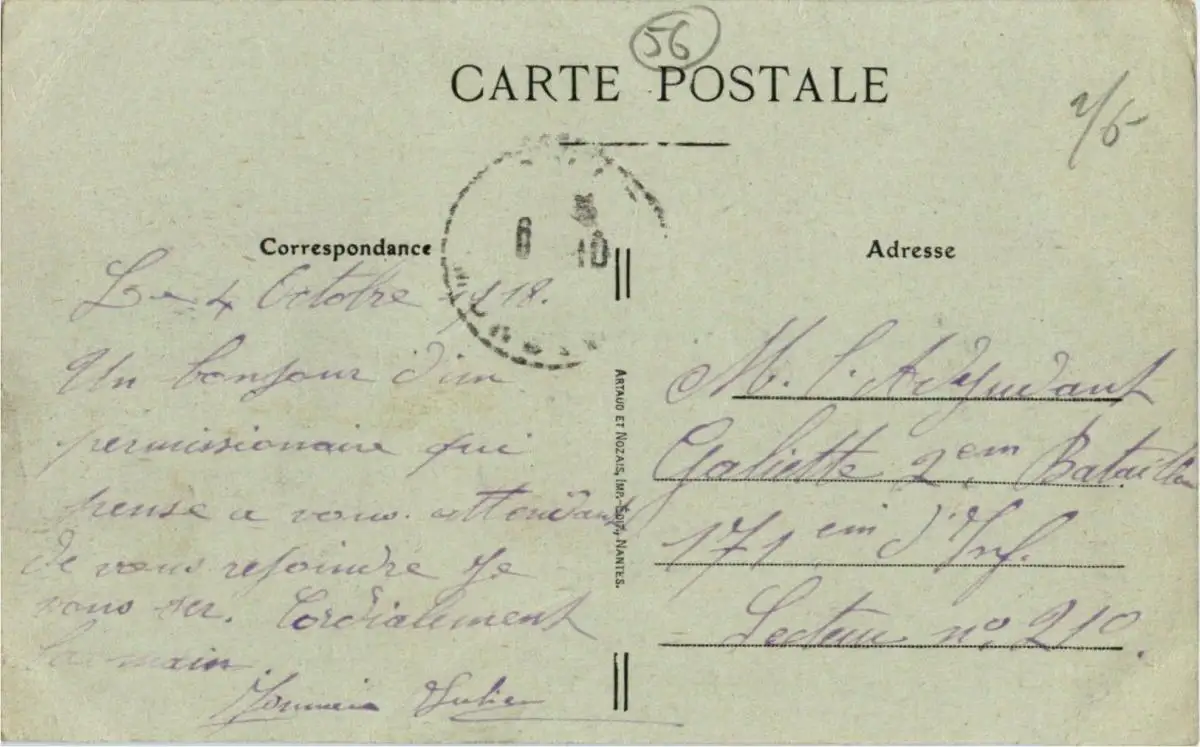 56
CARTE POSTALE
2/5
6 10
Correspondance
Adresse
Le 4 Octobre 1918.
Un bonjour d'un
permissionaire qui
pense a vous. attendant
de vous rejoindre Je
vous ser. Cordialement
la main.
Julien
ARTAUD ET NOZAIS, IMP.-EDIT, NANTES.
M. l'Adjudant
Galiette 2em Bataillon
171 em d'Inf.
Secteur no. 210.